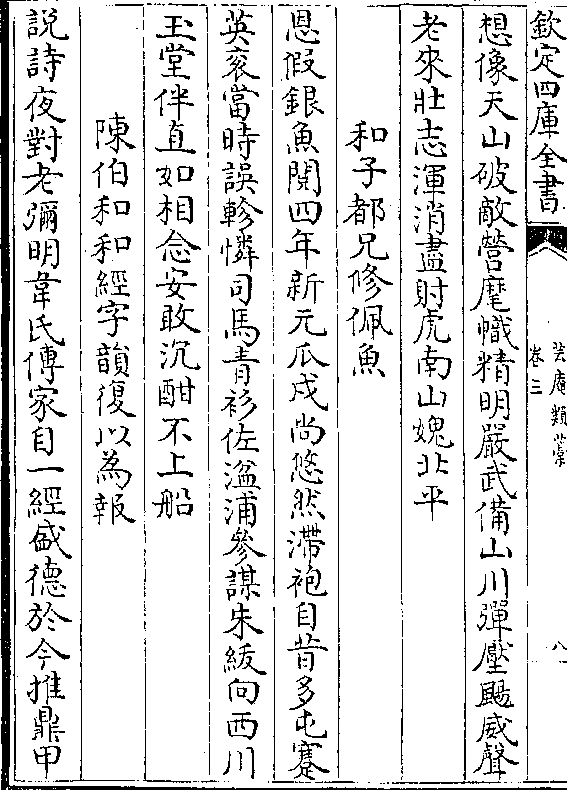 欽定四庫全書
芸庵類藁
卷三
八
想像天山破敵營麾幟精明嚴武備山川彈壓颺威聲
老來壯志渾消盡射虎南山媿北平
和子都兄修佩魚
恩假銀魚閱四年新元瓜戍尚悠然滯袍自昔多屯蹇
英衮當時誤軫憐司馬青衫佐湓浦參謀朱紱向西川
玉堂伴直如相念安敢沉酣不上船
陳伯和和經字韻復以為報
説詩夜對老彌明韋氏傳家自一經盛德於今推鼎甲